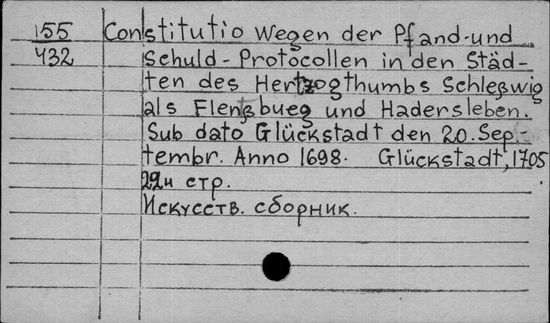 155 Constitutio wegen der Pfand-und
432 Schuld-Protocollen in den Städ-
ten des Hertzogthumbs Schleßwig
als Flenßbueg und Hadersleben.
Sub dato Glückstadt den 20. Sep.-
tembr. Anno 1698. Glückstadt, 1705
22н стр.
Искусств. сборник.